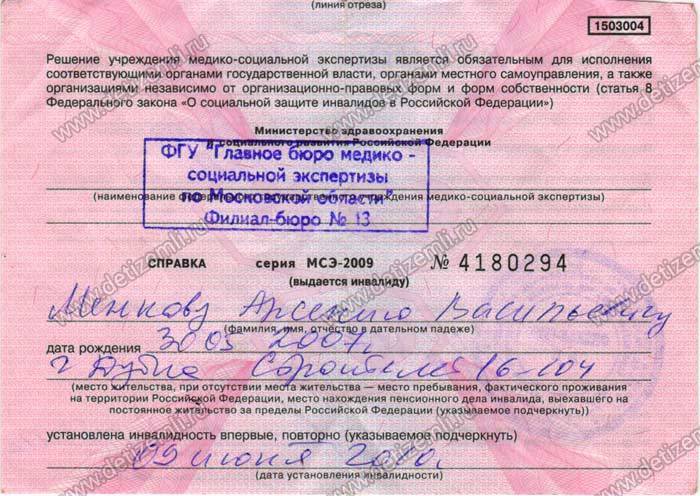 (линия отреза)
1503004
Решение учреждения медико-социальной экспертизы является обязательным для исполнения
соответствующими органами государственной власти, органами местного самоуправления, а также
организациями независимо от организационно-правовых форм и форм собственности (статья 8
Федерального закона «О социальной защите инвалидов в Российской Федерации»)
Министерство здравоохранения
и социального развития Российской Федерации
ФГУ "Главное бюро медико -
социальной экспертизы
по Московской области"
Филиал-бюро № 13
(наименование федерального государственного учреждения медико-социальной экспертизы)
СПРАВКА серия МСЭ-2009 № 4180294
(выдается инвалиду)
Менкову Арсению Васильевичу
(фамилия, имя, отчество в дательном падеже)
дата рождения 30 03 2007г.
г Дубна Строителей 16-104
(место жительства, при отсутствии места жительства — место пребывания, фактического проживания
на территории Российской Федерации, место нахождения пенсионного дела инвалида, выехавшего на
постоянное жительство за пределы Российской Федерации (указываемое подчеркнуть))
установлена инвалидность впервые, повторно (указываемое подчеркнуть)
09 июня 2010г.
(дата установления инвалидности)
www.detizemli.ru